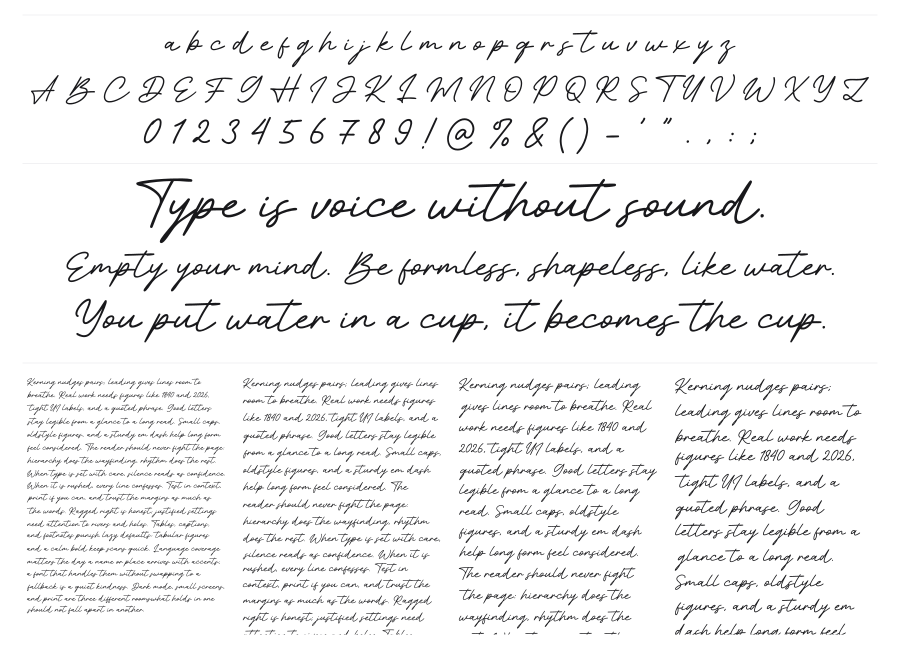 a b c d e f g h i j k l m n o p q r s t u v w x y z
A B C D E F G H I J K L M N O P Q R S T U V W X Y Z
0 1 2 3 4 5 6 7 8 9 ! @ % & ( ) - ' " . , : ;
Type is voice without sound.
Empty your mind. Be formless, shapeless, like water.
You put water in a cup, it becomes the cup.
Kerning nudges pairs; leading gives lines room to
breathe. Real work needs figures like 1840 and 2026,
tight UI labels, and a quoted phrase. Good letters
stay legible from a glance to a long read. Small caps,
oldstyle figures, and a sturdy em dash help long form
feel considered. The reader should never fight the page:
hierarchy does the wayfinding, rhythm does the rest.
When type is set with care, silence reads as confidence.
When it is rushed, every line confesses. Test in context,
print if you can, and trust the margins as much as
the words. Ragged right is honest, justified settings
need attention to rivers and holes. Tables, captions,
and footnotes punish lazy defaults. Tabular figures
and a calm bold keep scans quick. Language coverage
matters the day a name or place arrives with accents;
a font that handles them without swapping to a
fallback is a quiet kindness. Dark mode, small screens,
and print are three different rooms what holds in one
should not fall apart in another.
Kerning nudges pairs; leading gives lines
room to breathe. Real work needs figures
like 1840 and 2026, tight UI labels, and a
quoted phrase. Good letters stay legible
from a glance to a long read. Small caps,
oldstyle figures, and a sturdy em dash
help long form feel considered. The
reader should never fight the page:
hierarchy does the wayfinding, rhythm
does the rest. When type is set with care,
silence reads as confidence. When it is
rushed, every line confesses. Test in
context, print if you can, and trust the
margins as much as the words. Ragged
right is honest, justified settings need
Kerning nudges pairs; leading
gives lines room to breathe. Real
work needs figures like 1840 and
2026, tight UI labels, and a
quoted phrase. Good letters stay
legible from a glance to a long
read. Small caps, oldstyle
figures, and a sturdy em dash
help long form feel considered.
The reader should never fight
the page: hierarchy does the
wayfinding, rhythm does the
Kerning nudges pairs;
leading gives lines room to
breathe. Real work needs
figures like 1840 and 2026,
tight UI labels, and a
quoted phrase. Good
letters stay legible from a
glance to a long read.
Small caps, oldstyle
figures, and a sturdy em
dash help long form feel